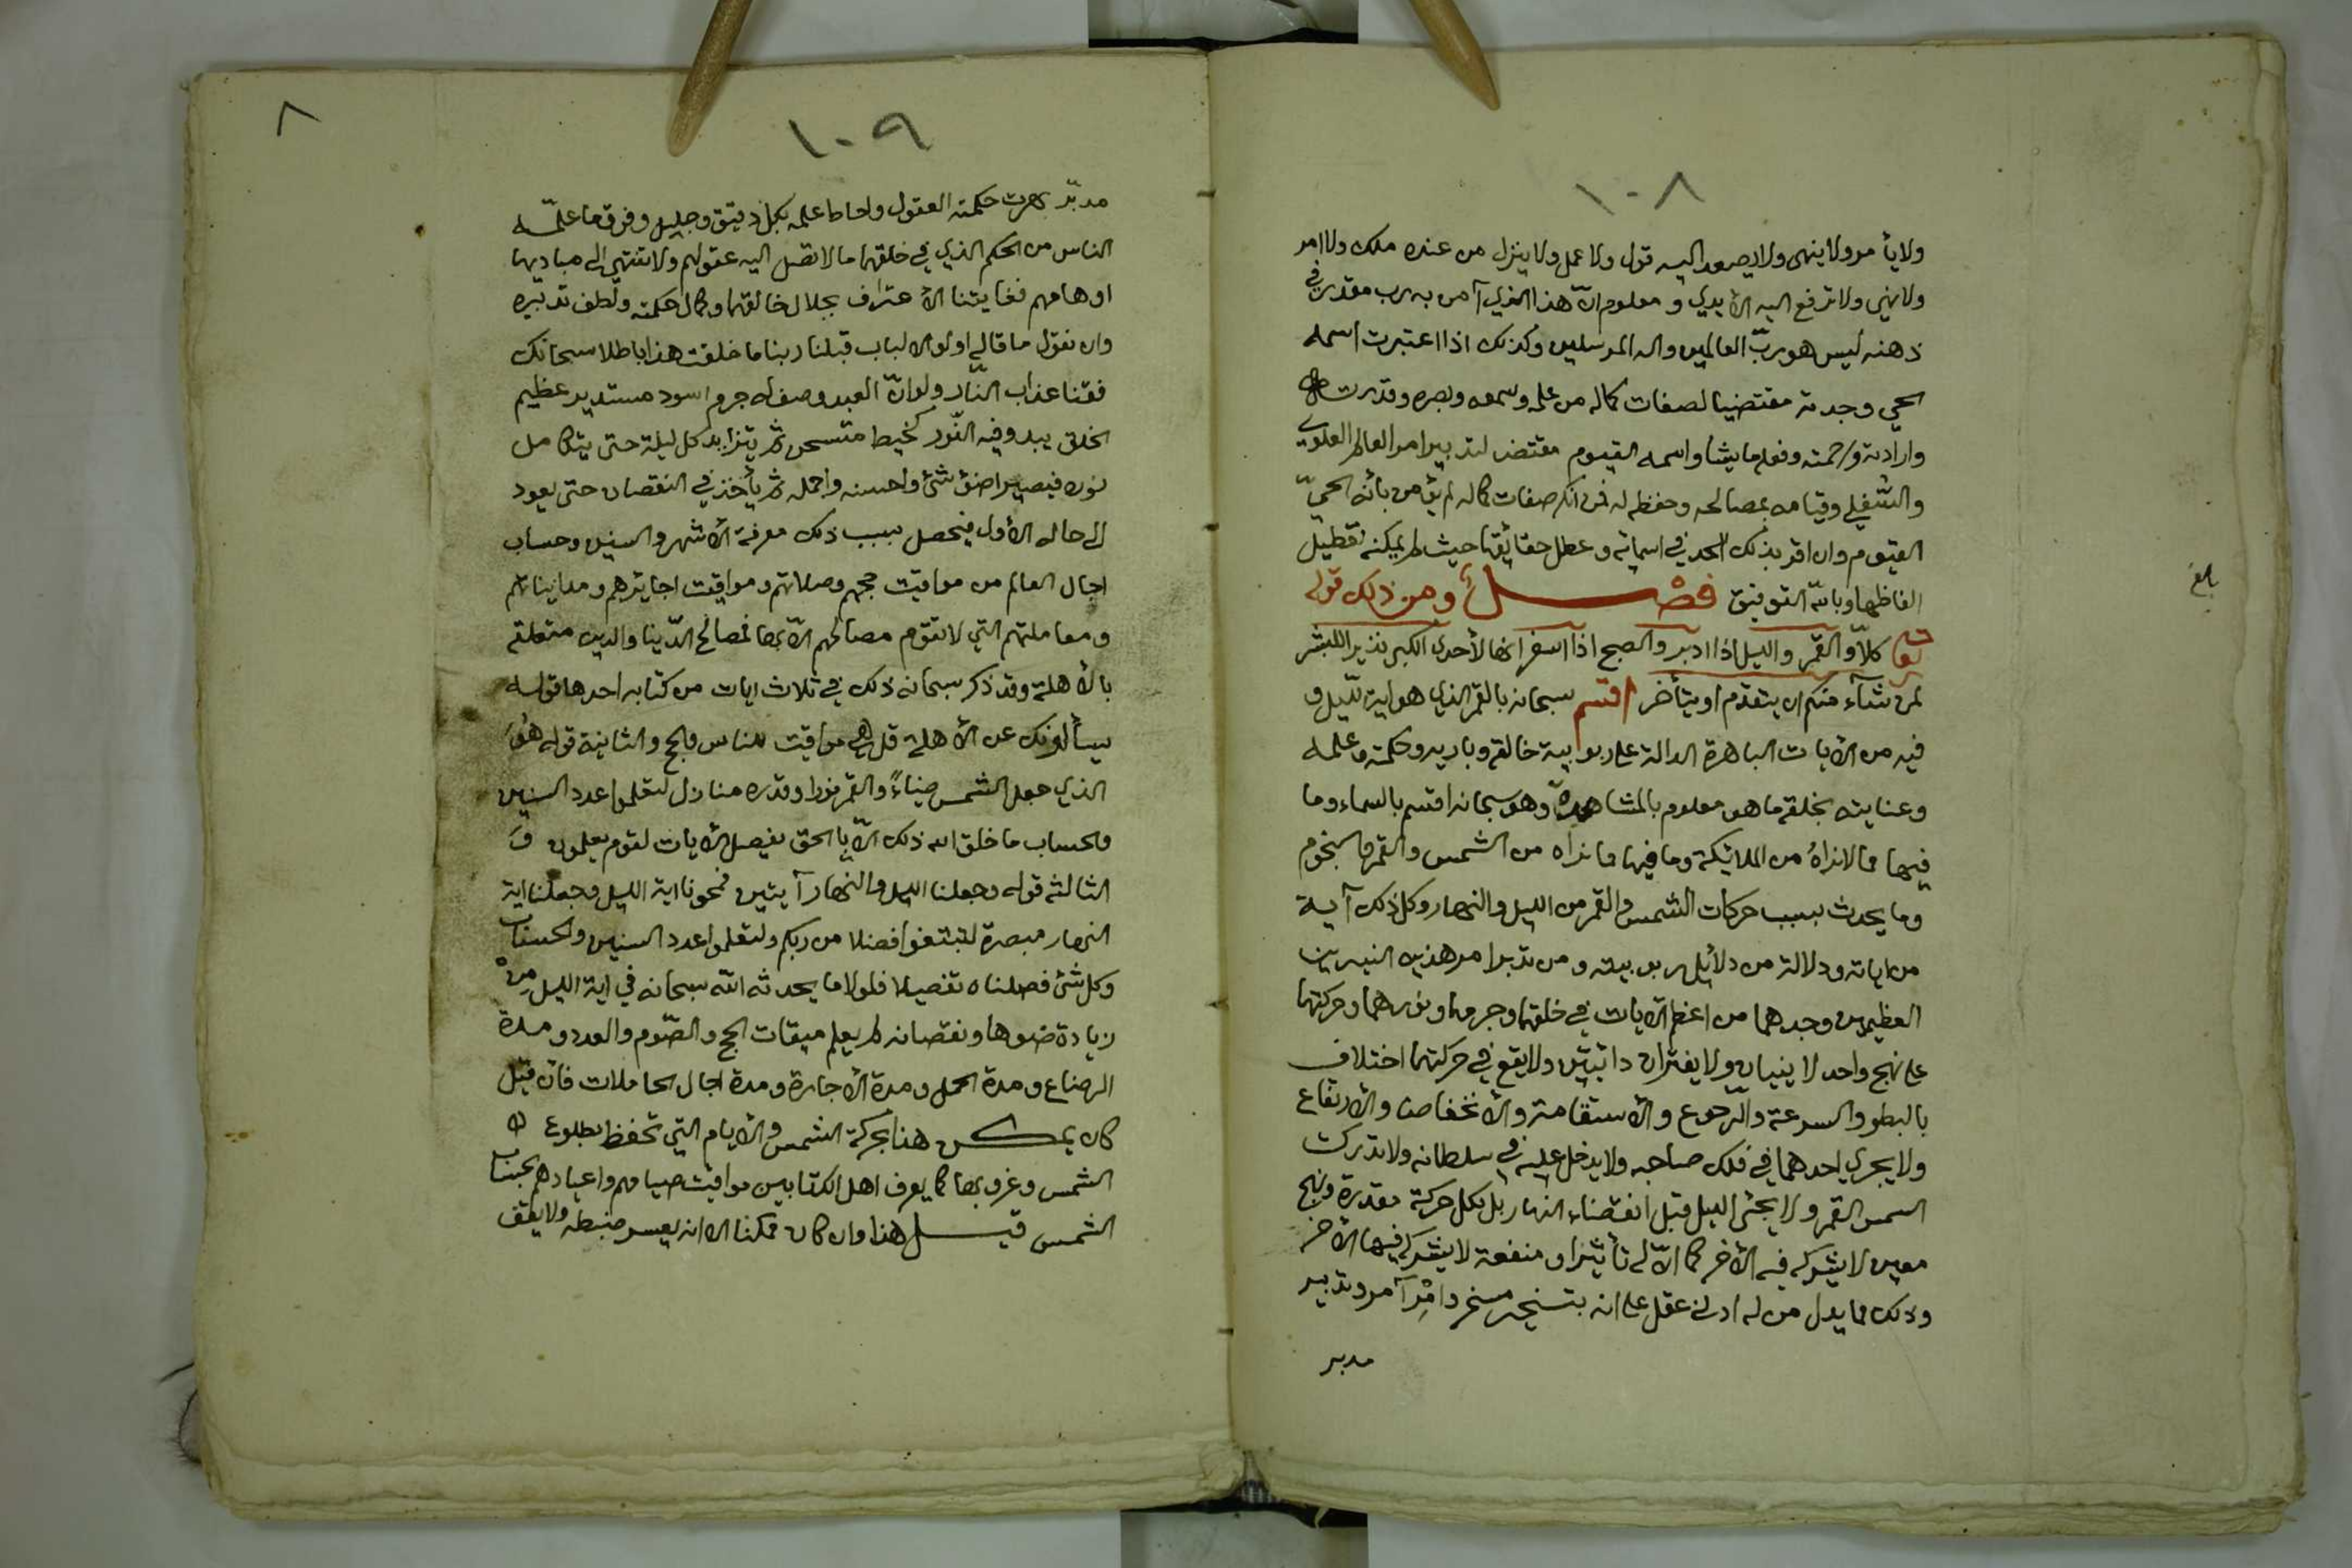 ١٠٨
ولا يأمر ولا ينهى ولا يصعد اليه قول ولا عمل ولا ينزل من عنده ملك ولا امر
ولا نهي ولا ترفع اليه الأيدي ومعلوم انّ هذا الذي آمن به رب مقدر في
ذهنه ليس هو ربّ العالمين واله المرسلين وكذلك اذا اعتبرت اسمه
الحي وجدته مقتضيا لصفات كماله من علمه وسمعه وبصره وقدرته
وارادته ورحمته وفعله ما يشا واسمه القيوم مقتض لتدبير امر العالم العلوي
والسّفلي وقيامه بمصالحه وحفظه له فمن انكر صفات كماله لم يؤمن بأنه الحيّ
القيوم وان اقر بذلك الحد في اسمائه وعطل حقائقها حيث لم يمكنه تعطيل
الفاظها وبالله التوفيق فصْــل ومن ذلك قوله
تعا كلاّ والقمر والليل اذا ادبر والصبح اذا اسفر انها لأحدى الكبر نذيرا للبشر
لمن شآء منكم ان يتقدم او يتأخر اقسم سبحانه بالقمر الذي هو اية للّيل و
فيه من الأيات الباهرة الدالة على ربوبية خالقه وباريه وحكمته وعلمه
وعنايته بخلقه ما هو معلوم بالمشاهدة وهو سبحانه اقسم بالسماء وما
فيها مما لا نراهُ من الملائكة وما فيها مما نراه من الشمس والقمر والنجوم
وما يحدث بسبب حركات الشمس والقمر من الليل والنهار وكل ذلك آية
من اياته ودلالة من دلائل ربوبيته ومن تدبر امر هذين النيرين
العظيمين وجدهما من اعظم الأيات في خلقهما وجرمهما ونورهما وحركتهما
على نهج واحد لا ينيان ولا يفتران دائبين ولا يقع في حركتهما اختلاف
بالبطو والسرعة والرّجوع والأستقامة والأنخفاض والأرتفاع
ولا يجري احدهما في فلك صاحبه ولا يدخل عليه في سلطانه ولا تدركت
الشمس القمر ولا يجئ الليل قبل انقضاء النهار بل لكل حركة مقدرة ونهج
معين لا يشركه فيه الأخر كما انّ له تأثيرا ومنفعة لا يشركه فيها الأخر
وذلك مما يدل من له ادنى عقل على انه بتسخير مسخر وامْرِ آمر وتدبير
مدبر
بلغ
٨
١٠٩
مدبّر بهرت حكمته العقول واحاط علمه بكل دقيق وجليل وفرق ما علمّه
الناس من الحكم الذي في خلقهما ما لا تصل اليه عقولهم ولا تنتهي الى مباديها
اوهامهم فغايتنا الأعتراف بجلال خالقهما وكمال حكمته ولطف تدبيره
وان نقول ما قاله اولو الالباب قبلنا ربنا ما خلقت هذا باطلا سبحانك
فقنا عذاب النّار ولو انّ العبد وصف له جرم اسود مستدير عظيم
الخلق يبدو فيه النّور كخيط متسحر ثم يتزايد كل ليلة حتى يتكامل
نوره فيصير اضوئ شئ واحسنه واجمله ثم يأخذ في النقصان حتى يعود
الى حاله الأول فيحصل بسبب ذلك معرفة الأشهر والسنين وحساب
اجال العالم من مواقيت حجهم وصلاتهم ومواقيت اجايرهم ومدايناتهم
ومعاملتهم التي لا تقوم مصالحهم الاّ بها فمصالح الدّنيا والدين متعلقة
بالأهلة وقد ذكر سبحانه ذلك في ثلاث ايات من كتابه احدها قوله
يسألونك عن الأهلة قل هي مواقيت للناس والحج والثانية قوله هُو
الذي جعل الشمس ضياءً والقمر نورا وقدره منازل لتعلموا عدد السنين
والحساب ما خلق الله ذلك الاّ با الحق يفصل الأيات لقوم يعلمون وَ
الثالثه قوله وجعلنا الليل والنهار آيتين فمحونا اية الليل وجعلنا اية
النهار مبصرة لتبتغوا فضلا من ربكم ولتعلموا عدد السنين والحساب
وكل شئ فصلناه تفصيلا فلولا ما يحدثه اللّه سبحانه في اية الليل مِنْ
زيادة ضوها ونقصانه لم يعلم ميقات الحج والصّوم والعدد ومدة
الرضاع ومدة الحمل ومدة الأجارة ومدة اجال الحاملات فان قيل
كان يمكــن هذا بحركة الشمس والأيام التي تحفظ بطلوع
الشمس وغروبها كما يعرف اهل الكتابين مواقيت صيامهم واعيادهم بحساب
الشمس قيــل هذا وان كان ممكنا الا انه يعسر ضبطه ولا يقف